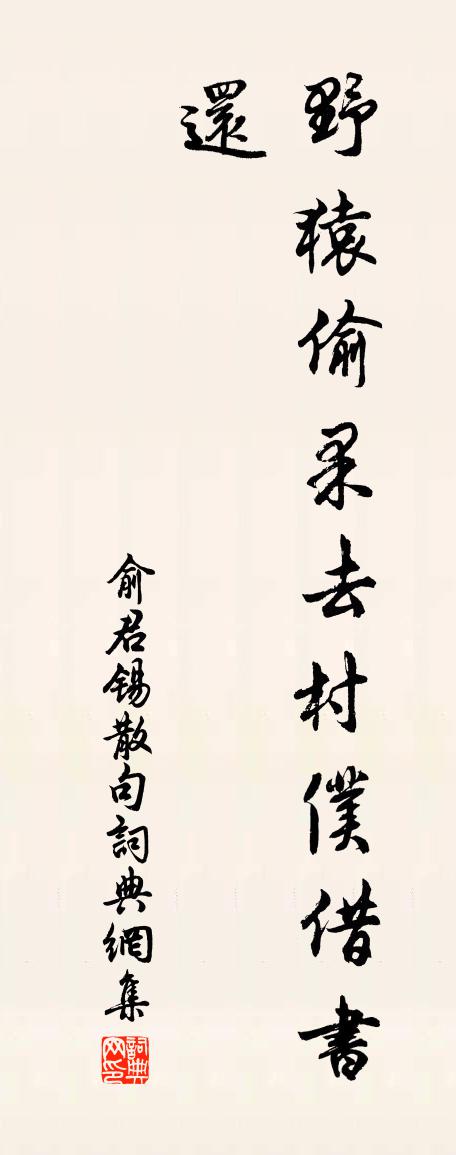 野猿偷果去村僕借書
還
俞君錫散句詞典網集
詞典
网印